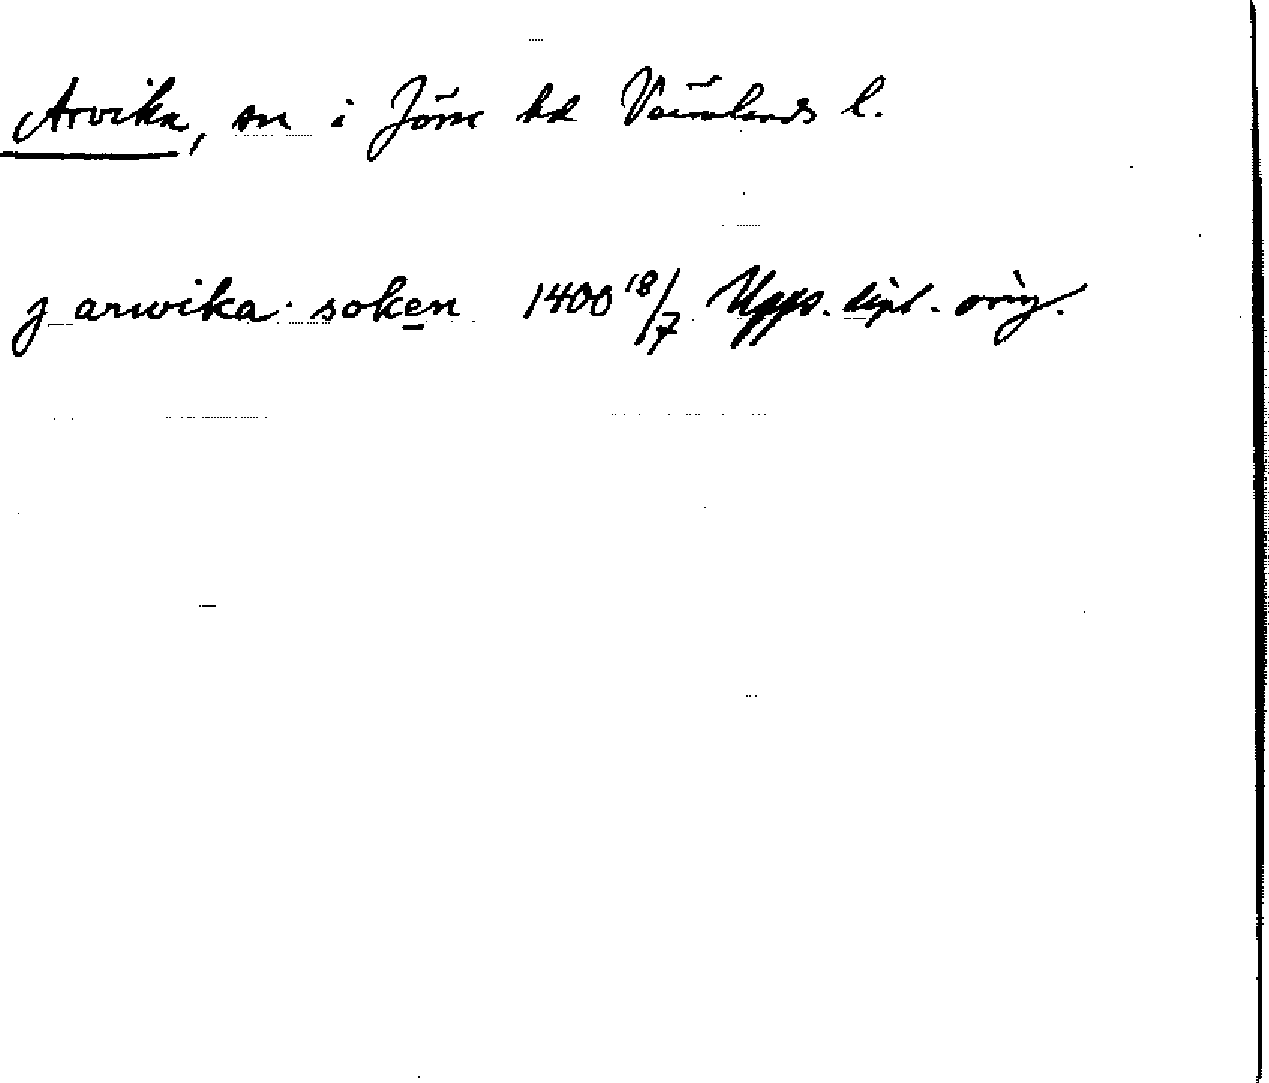 Arvika, sn i Jöss hd Värmlands l.
j arwika soken 1400 18/7 Upps. dipl. orig.